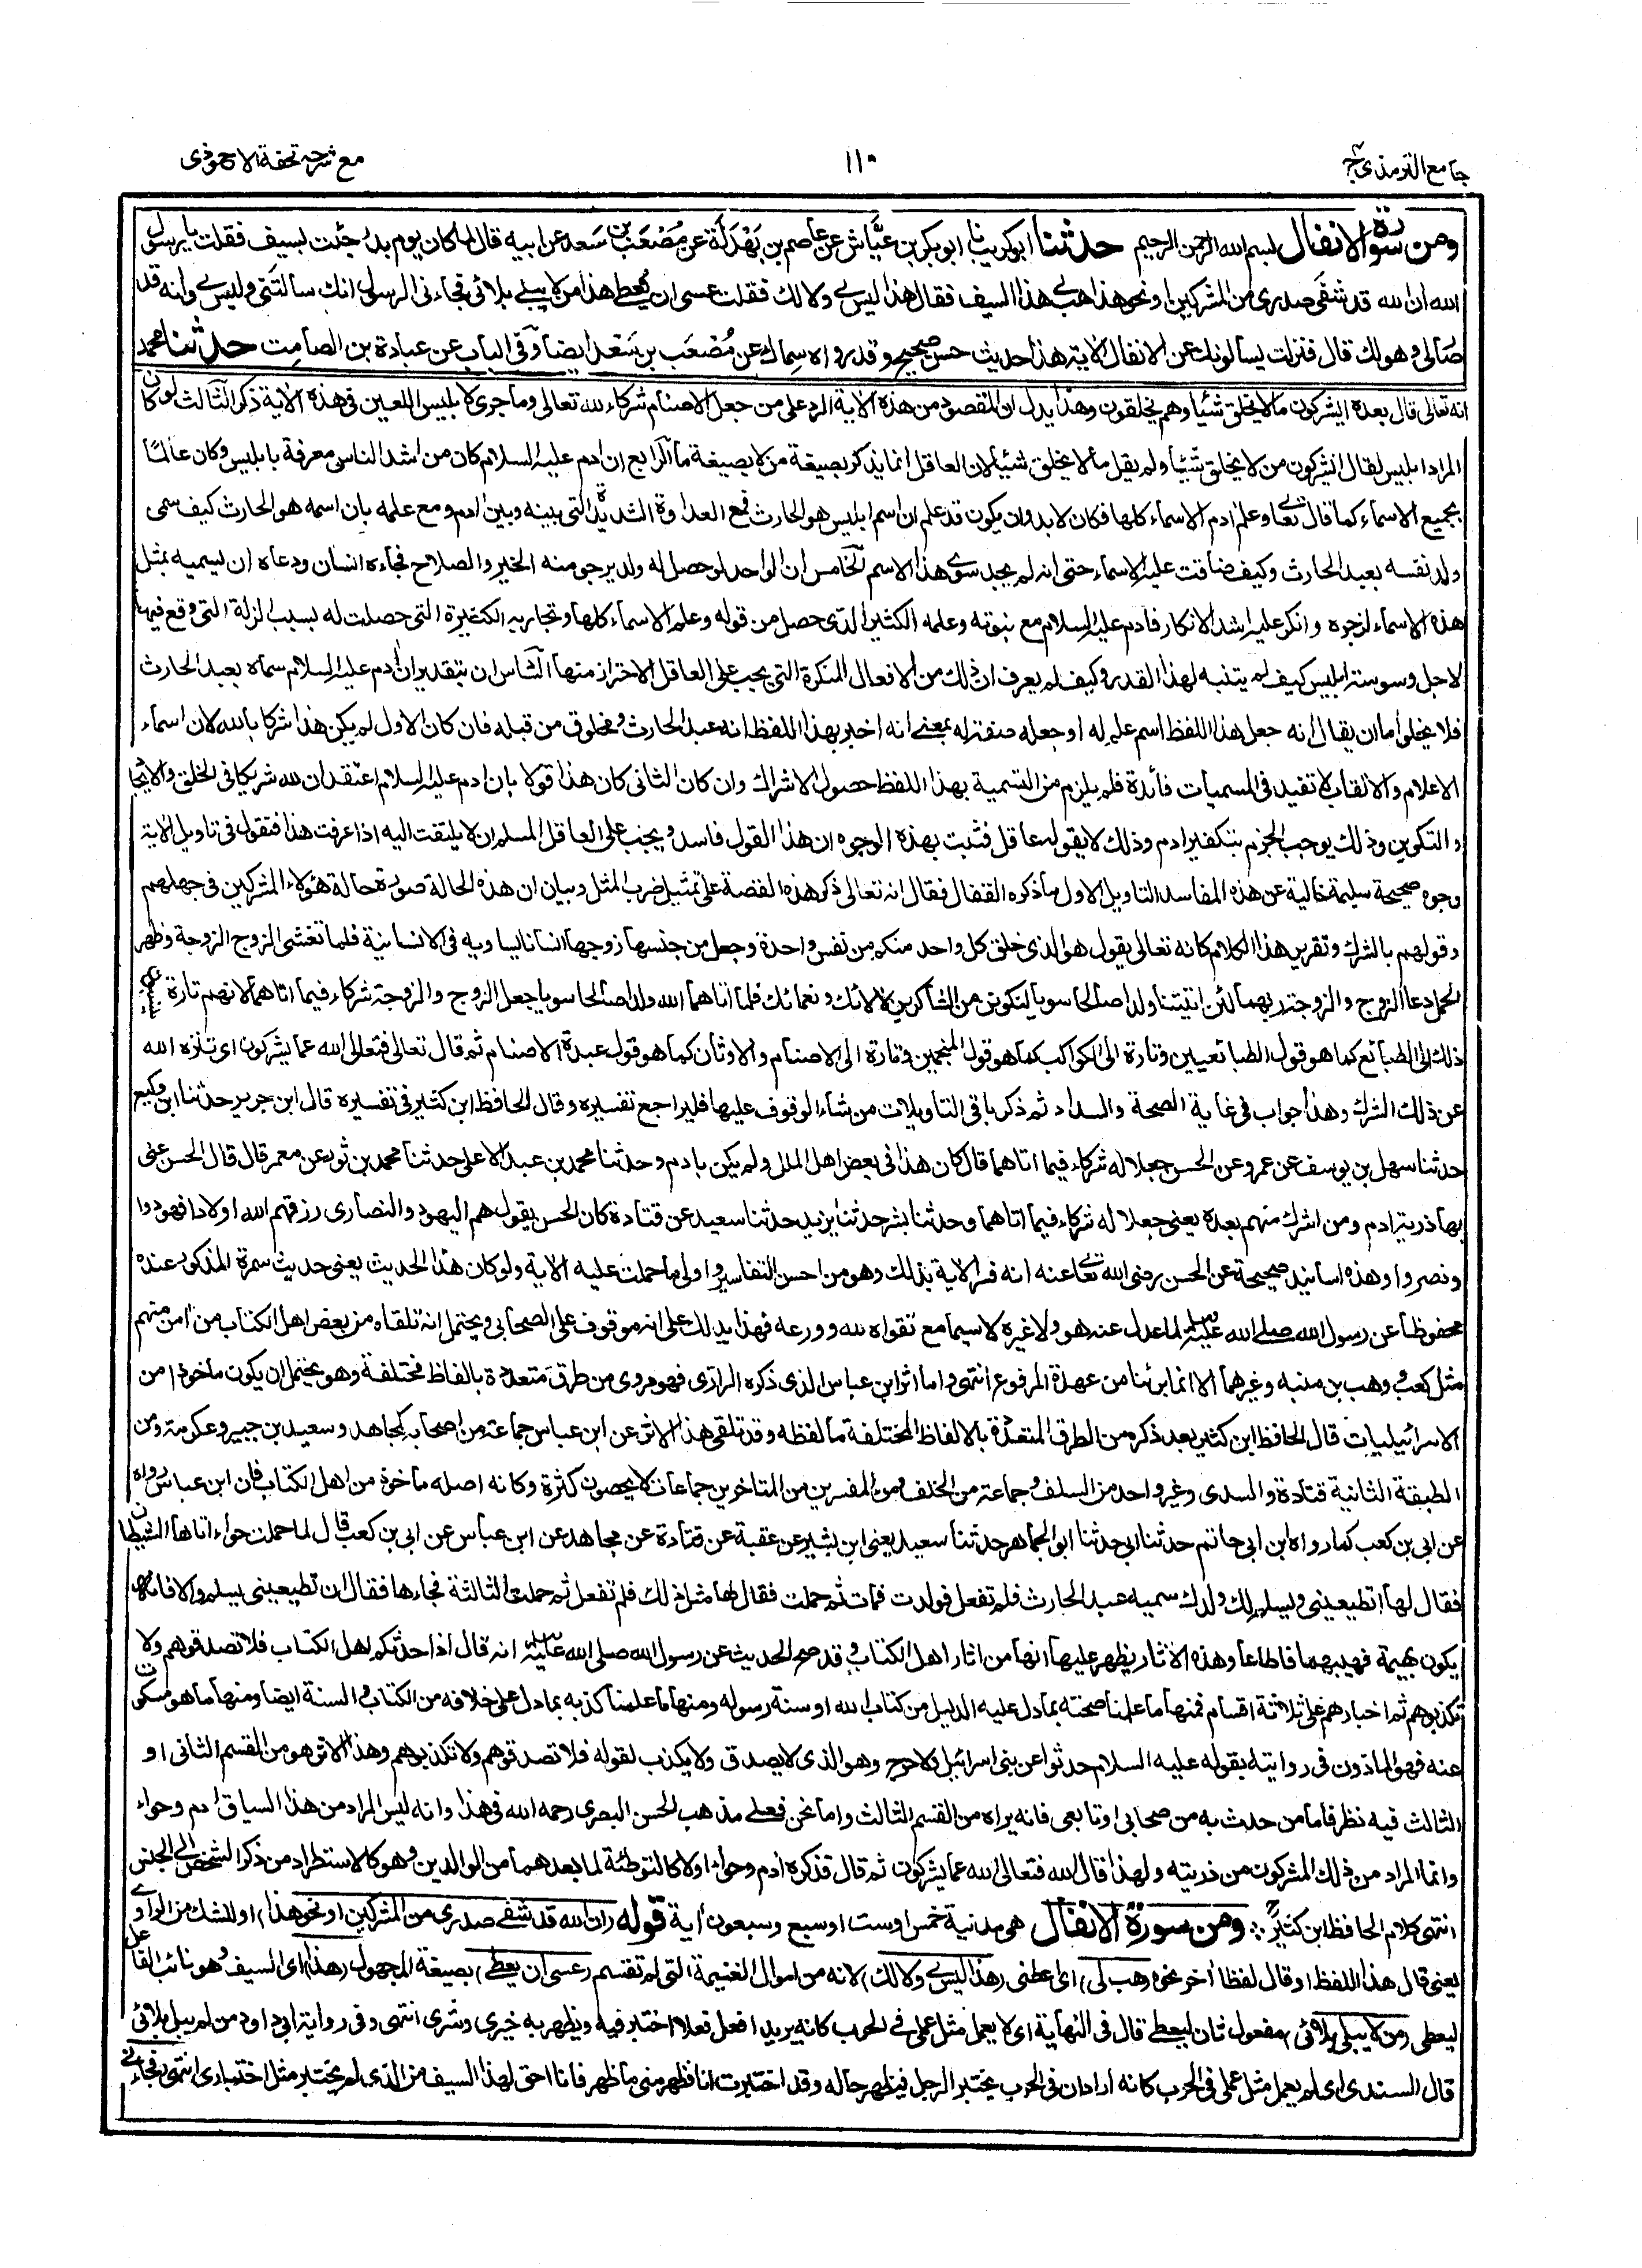 جامع الترمذي ج٤
١١٠
مع شرحه تحفة الاحوذى
ومن سورة الانفال بسم الله الرحمن الرحيم حدثنا ابو كريب نا ابو بكر بن عَيَّاش عن عاصم بن بَهْدَلَة عن مُصْعَب بن سَعد عن ابيه قال لما كان يوم بدر جئت بسيف فقلت يا رسول
الله ان الله قد شفى صدرى من المشركين او نحو هذا هب لى هذا السيف فقال هذا ليس لى ولا لك فقلت عسى ان يُعطى هذا من لا يبلى بلائى فجاءنى الرسول انك سالتنى وليس لى وانه قد
صار لى وهو لك قال فنزلت يسالونك عن الانفال الاية هذا حديث حسن صحيح وقد رواه سماك عن مُصْعَب بن سَعد ايضا وفى الباب عن عبادة بن الصامت حدثنا محمد
انه تعالى قال بعده ايشركون ما لا يخلق شيئا وهم يخلقون وهذا يدل ان المقصود من هذه الاية الرد على من جعل الاصنام شركاء لله تعالى وما جرى لابليس اللعين فى هذه الاية ذكر الثالث لو كان
المراد ابليس لقال ايشركون من لا يخلق شيئا ولم يقل ما لا يخلق شيئا لان العاقل انما يذكر بصيغة من لا بصيغة ما الرابع ان ادم عليه السلام كان من اشد الناس معرفة بابليس وكان عالما
بجميع الاسماء كما قال تعالى وعلم ادم الاسماء كلها فكان لا بد وان يكون قد علم ان اسم ابليس هو الحارث فمع العداوة الشديدة التى بينه وبين ادم ومع علمه بان اسمه هو الحارث كيف سمى
ولد نفسه بعبد الحارث وكيف ضاقت عليه الاسماء حتى انه لم يجد سوى هذا الاسم الخامس ان الواحد لو حصل له ولد يرجو منه الخير والصلاح فجاءه انسان ودعاه ان يسميه بمثل
هذه الاسماء لزجره وانكر عليه اشد الانكار فادم عليه السلام مع نبوته وعلمه الكثير الذى حصل من قوله وعلم الاسماء كلها وتجاربه الكثيرة التى حصلت له بسبب الزلة التى وقع فيها
لاجل وسوسة ابليس كيف لم يتنبه لهذا القدر وكيف لم يعرف ان ذلك من الافعال المنكرة التى يجب على العاقل الاحتراز منها السادس ان بتقدير ان ادم عليه السلام سماه بعبد الحارث
فلا يخلو اما ان يقال انه جعل هذا اللفظ اسم علم له او جعله صفة له بمعنى انه اخبر بهذا اللفظ انه عبد الحارث ومخلوق من قبله فان كان الاول لم يكن هذا شركا بالله لان اسماء
الاعلام والالقاب لا تفيد فى المسميات فائدة فلم يلزم من التسمية بهذا اللفظ حصول الاشراك وان كان الثانى كان هذا قولا بان ادم عليه السلام اعتقد ان لله شريكا فى الخلق والايجاد
والتكوين وذلك يوجب الجزم بتكفير ادم وذلك لا يقوله عاقل فثبت بهذه الوجوه ان هذا القول فاسد ويجب على العاقل المسلم ان لا يلتفت اليه اذا عرفت هذا فنقول فى تاويل الاية
وجوه صحيحة سليمة خالية عن هذه المفاسد التاويل الاول ما ذكره القفال فقال انه تعالى ذكر هذه القصة على تمثيل ضرب المثل وبيان ان هذه الحالة صورة حالة هؤلاء المشركين فى جهلهم
وقولهم بالشرك وتقرير هذا الكلام كانه تعالى يقول هو الذى خلق كل واحد منكم من نفس واحدة وجعل من جنسها زوجها انسانا يساويه فى الانسانية فلما تغشى الزوج الزوجة وظهر
الحمل دعا الزوج والزوجة ربهما لئن اتيتنا ولدا صالحا سويا لنكونن من الشاكرين لالائك ونعمائك فلما اتاهما الله ولدا صالحا سويا جعل الزوج والزوجة شركاء فيما اتاهما لانهم تارة ينسبون
ذلك الى الطبائع كما هو قول الطبائعيين وتارة الى الكواكب كما هو قول المنجمين وتارة الى الاصنام والاوثان كما هو قول عبدة الاصنام ثم قال تعالى فتعالى الله عما يشركون اى تنزه الله
عن ذلك الشرك وهذا جواب فى غاية الصحة والسداد ثم ذكر باقى التاويلات من شاء الوقوف عليها فليراجع تفسيره وقال الحافظ ابن كثير فى تفسيره قال ابن جرير حدثنا ابن وكيع
حدثنا سهل بن يوسف عن عمرو عن الحسن جعلا له شركاء فيما اتاهما قال كان هذا فى بعض اهل الملل ولم يكن بادم وحدثنا محمد بن عبد الاعلى حدثنا محمد بن ثور عن معمر قال قال الحسن عنى
بها ذرية ادم ومن اشرك منهم بعده يعنى جعلا له شركاء فيما اتاهما وحدثنا بشر حدثنا يزيد حدثنا سعيد عن قتادة كان الحسن يقول هم اليهود والنصارى رزقهم الله اولادا فهودوا
ونصروا وهذه اسانيد صحيحة عن الحسن رضى الله تعالى عنه انه فسر الاية بذلك وهو من احسن التفاسير واولى ما حملت عليه الاية ولو كان هذا الحديث يعنى حديث سمرة المذكور عنده
محفوظا عن رسول الله صلى الله عليه وسلم لما عدل عنه هو ولا غيره لا سيما مع تقواه لله وورعه فهذا يدلك على انه موقوف على الصحابى ويحتمل انه تلقاه من بعض اهل الكتاب من امن منهم
مثل كعب ووهب بن منبه وغيرهما الا اننا برئنا من عهدة المرفوع انتهى واما اثر ابن عباس الذى ذكره الرازى فهو مروى من طرق متعددة بالفاظ مختلفة وهو يحتمل ان يكون ماخوذا من
الاسرائيليات قال الحافظ ابن كثير بعد ذكره من الطرق المتعددة بالالفاظ المختلفة ما لفظه وقد تلقى هذا الاثر عن ابن عباس جماعة من اصحابه كمجاهد وسعيد بن جبير وعكرمة ومن
الطبقة الثانية قتادة والسدى وغير واحد من السلف وجماعة من الخلف ومن المفسرين من المتاخرين جماعات لا يحصون كثرة وكانه اصله ماخوذ من اهل الكتاب فان ابن عباس رواه
عن ابى بن كعب كما رواه ابن ابى حاتم حدثنا ابى حدثنا ابو الجماهر حدثنا سعيد يعنى ابن بشير عن عقبة عن قتادة عن مجاهد عن ابن عباس عن ابى بن كعب قال لما حملت حواء اتاها الشيطان
فقال لها اتطيعينى ويسلم لك ولدك سميه عبد الحارث فلم تفعل فولدت فمات ثم حملت فقال لها مثل ذلك فلم تفعل ثم حملت الثالثة فجاءها فقال ان تطيعينى يسلم والا فانه
يكون بهيمة فهيبهما فاطاعا وهذه الاثار يظهر عليها انها من اثار اهل الكتاب وقد صح الحديث عن رسول الله صلى الله عليه وسلم انه قال اذا حدثكم اهل الكتاب فلا تصدقوهم ولا
تكذبوهم ثم اخبارهم على ثلاثة اقسام فمنها ما علمنا صحته بما دل عليه الدليل من كتاب الله او سنة رسوله ومنها ما علمنا كذبه بما دل على خلافه من الكتاب والسنة ايضا ومنها ما هو مسكوت
عنه فهو الماذون فى روايته بقوله عليه السلام حدثوا عن بنى اسرائيل ولا حرج وهو الذى لا يصدق ولا يكذب لقوله فلا تصدقوهم ولا تكذبوهم وهذا الاثر هو من القسم الثانى او
الثالث فيه نظر فاما من حدث به من صحابى او تابعى فانه يراه من القسم الثالث واما نحن فعلى مذهب الحسن البصرى رحمه الله فى هذا وانه ليس المراد من هذا السياق ادم وحواء
وانما المراد من ذلك المشركون من ذريته ولهذا قال الله فتعالى الله عما يشركون ثم قال فذكره ادم وحواء اولا كالتوطئة لما بعدهما من الوالدين وهو كالاستطراد من ذكر الشخص الى الجنس
انتهى كلام الحافظ ابن كثير ومن سورة الانفال هى مدنية خمس او ست او سبع وسبعون اية قوله (ان الله قد شفى صدرى من المشركين او نحو هذا) او للشك من الراوى
يعنى قال هذا اللفظ او قال لفظا اخر نحوه (هب لى) اى اعطنى (هذا ليس لى ولا لك) لانه من اموال الغنيمة التى لم تقتسم (عسى ان يعطى) بصيغة المجهول (هذا) اى السيف وهو نائب الفاعل
ليعطى (من لا يبلى بلائى) مفعول ثان ليعطى قال فى النهاية اى لا يعمل مثل عملى فى الحرب كانه يريد افعل فعلا اختبر فيه ويظهر به خيرى وشرى انتهى وفى رواية ابى داود من لم يبل بلائى
قال السندى اى لم يعمل مثل عملى فى الحرب كانه اراد ان فى الحرب يختبر الرجل فيظهر حاله وقد اختبرت انا فظهر منى ما ظهر فانا احق لهذا السيف من الذى لم يختبر مثل اختبارى انتهى (فجاءنى